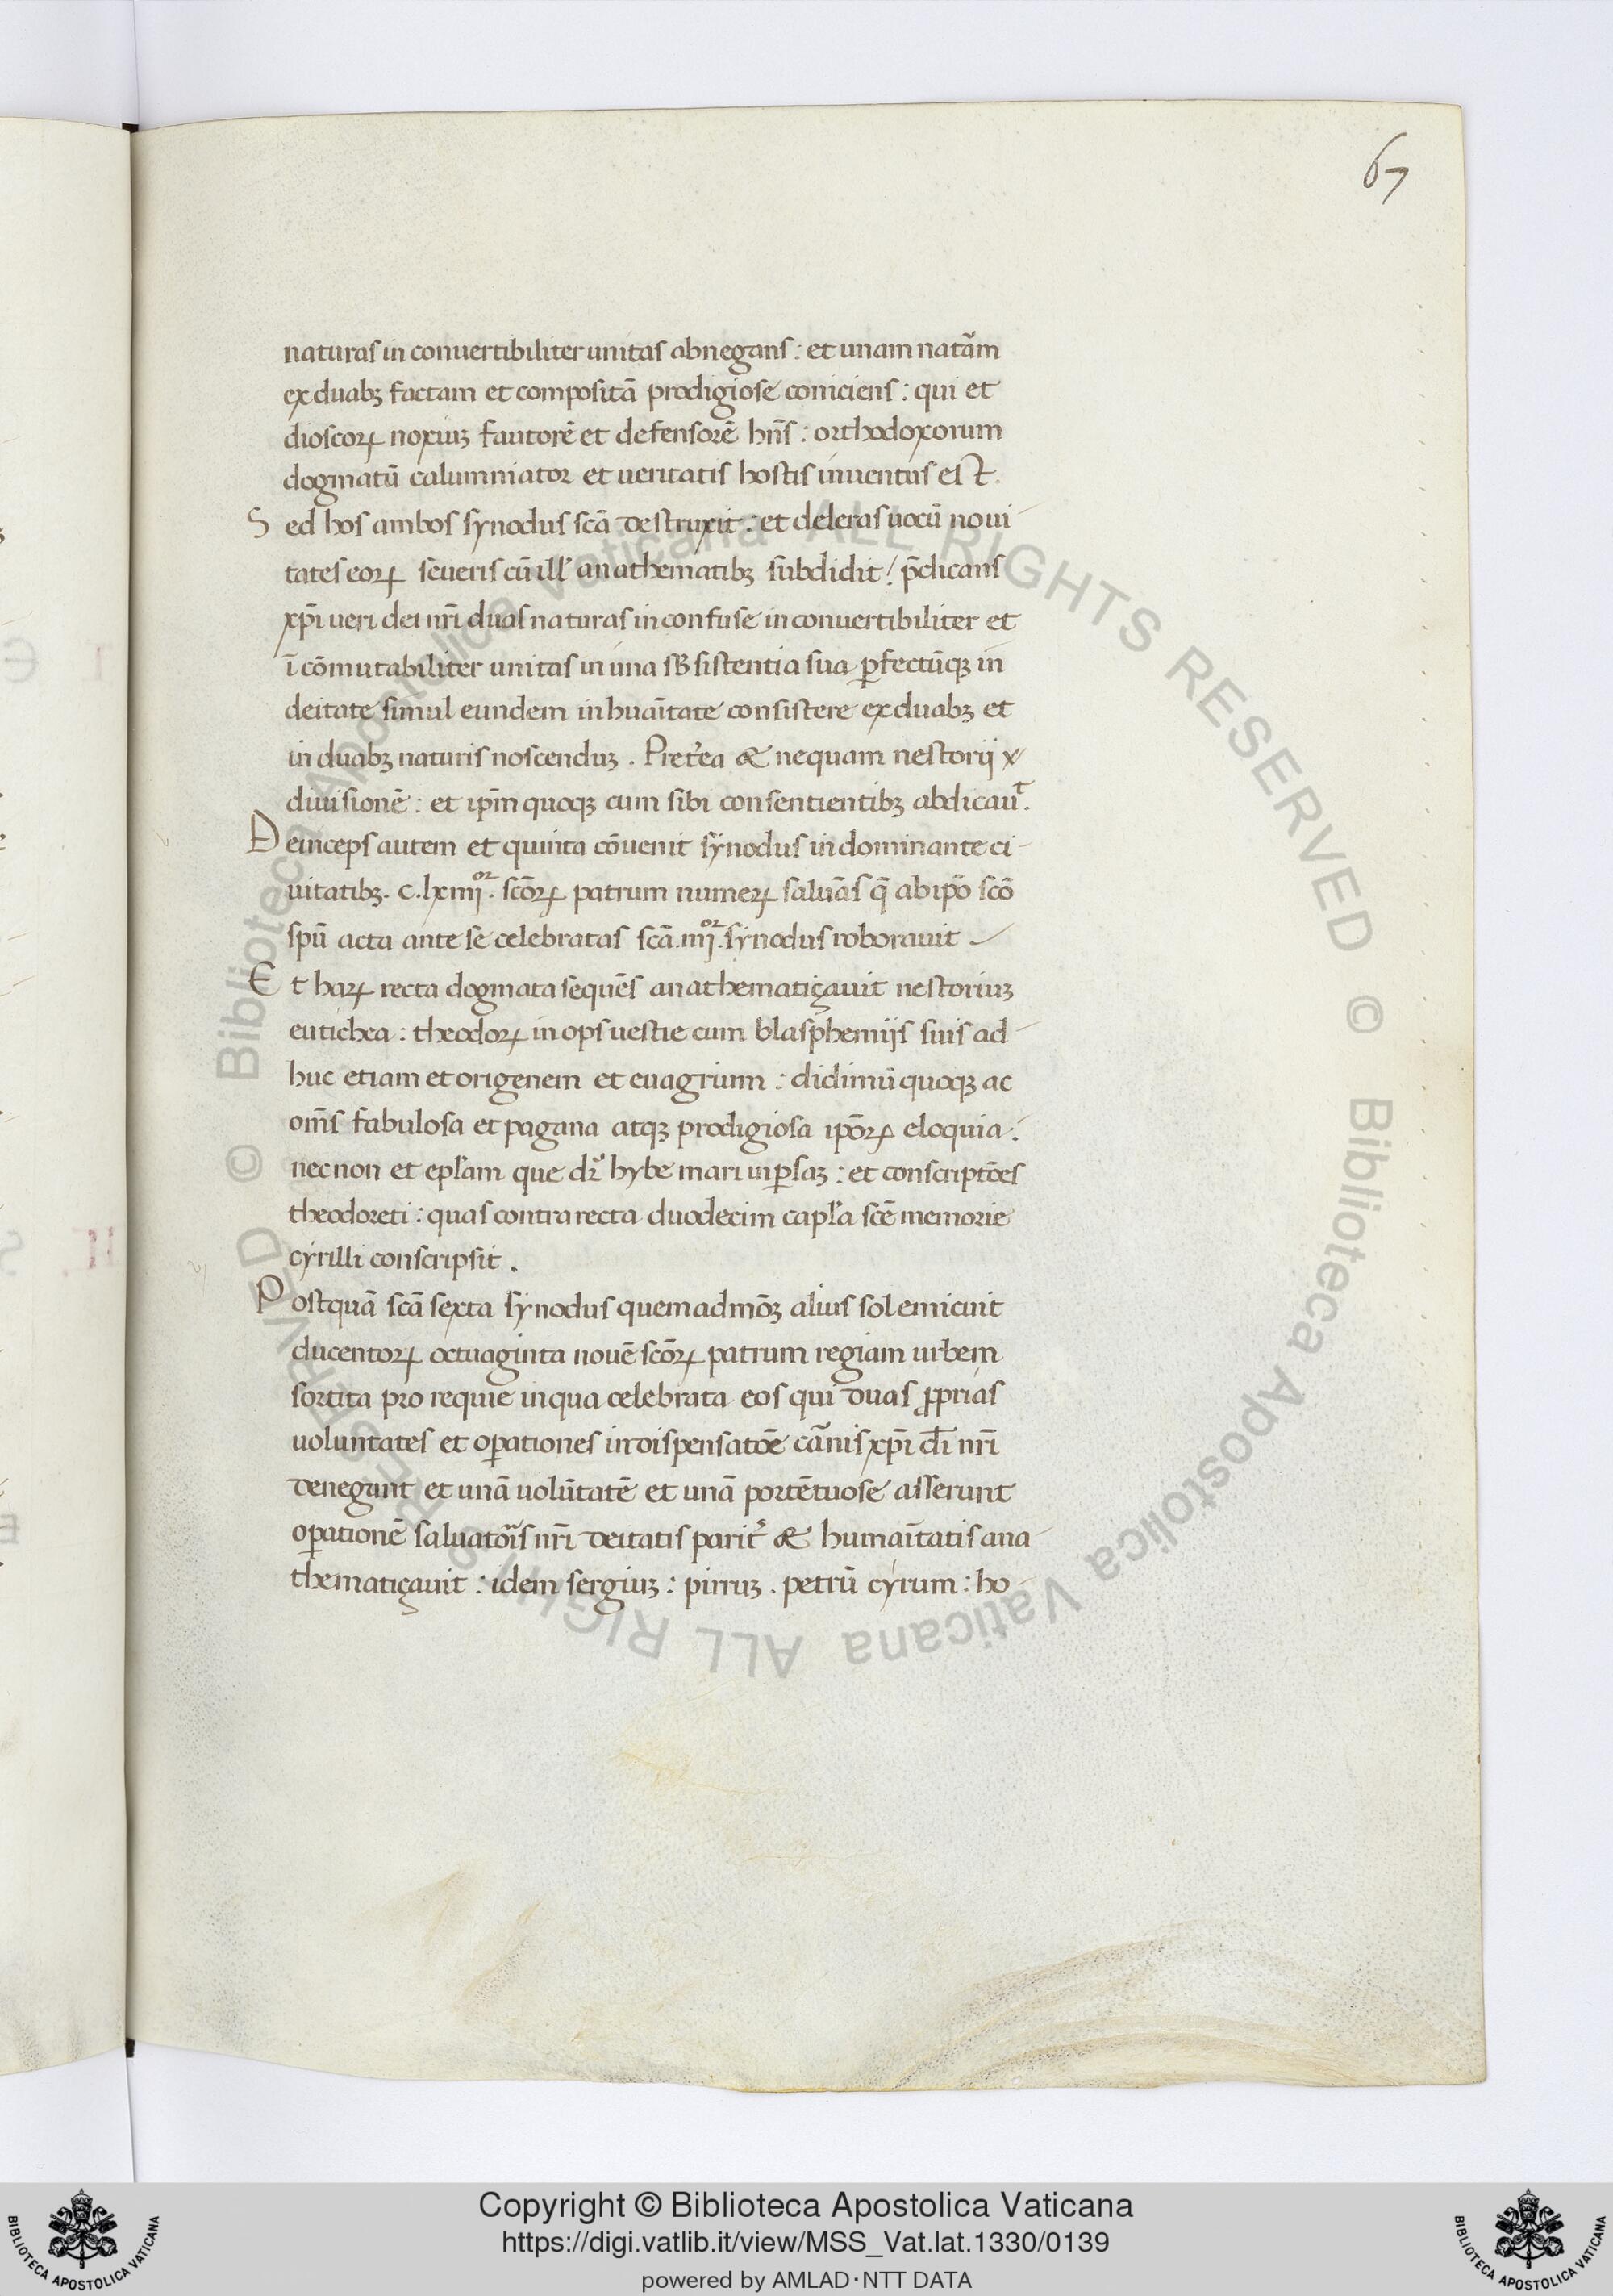 67
naturas in conuertibiliter unitas abnegans : et unam natãm
ex duabꝫ factam et compositã prodigiose coniciens : qui et
dioscoꝝ noxiuꝫ fautorẽ et defensorẽ hñs : orthodoxorum
dogmatũ calumniator et ueritatis hostis inuentus est.
Sed hos ambos synodus scã destruxit : et deleras uocũ noui-
tates eoꝝ seueris cũ ill' anathematibꝫ subdidit / p̃dicans
xp̃i ueri dei nr̃i duas naturas inconfuse inconuertibiliter et
ĩcõmutabiliter unitas in una sƀsistentia sua ꝑfectũqꝫ in
deitate simul eundem in huãitate consistere ex duabꝫ et
in duabꝫ naturis noscenduꝫ . Pret̾ea & nequam nestorij
diuisionẽ : et ip̃m quoqꝫ cum sibi consentientibꝫ abdicauᵗ.
Deinceps autem et quinta cõuenit synodus in dominante ci-
uitatibꝫ. c.lxiiijᵒʳ. scõꝝ patrum numeꝝ saluãs q̃ ab ip̃o scõ
spũ acta ante se celebratas scã.iiijᵒʳ.synodus roborauit
Et haꝝ recta dogmata sequẽs anathematiçauit nestoriuꝫ
eutichea : theodoꝝ in opsuestie cum blasphemijs suis ad-
huc etiam et origenem et euagrium : didimũ quoqꝫ ac
om̃s fabulosa et pagana atqꝫ prodigiosa ip̃oꝝ eloquia :
necnon et epl̃am que dr̃ hybe mari in ꝑsaꝫ : et conscriptões
theodoreti : quas contra recta duodecim capl̃a scẽ memorie
cyrilli conscripsit .
Postquã scã sexta synodus quemadmoꝫ alius sol emicuit
ducentoꝝ octuaginta nouẽ scõꝝ patrum regiam urbem
sortita pro requie in qua celebrata eos qui duas ꝓprias
uoluntates et oꝑationes in dispensatõe carnis xp̃i dĩ nr̃i
denegant et unã uolũtatẽ et unã portẽtuose asserunt
oꝑationẽ saluatõris nr̃i deitatis parit̾ & humãitatis ana-
thematiçauit : idem sergiuꝫ : pirruꝫ . petrũ cyrum : ho-
© Biblioteca Apostolica Vaticana ALL RIGHTS RESERVED © Biblioteca Apostolica Vaticana ALL RIGHTS RESERVED
Copyright © Biblioteca Apostolica Vaticana
https://digi.vatlib.it/view/MSS_Vat.lat.1330/0139
powered by AMLAD・NTT DATA
BIBLIOTECA APOSTOLICA VATICANA
BIBLIOTECA APOSTOLICA VATICANA